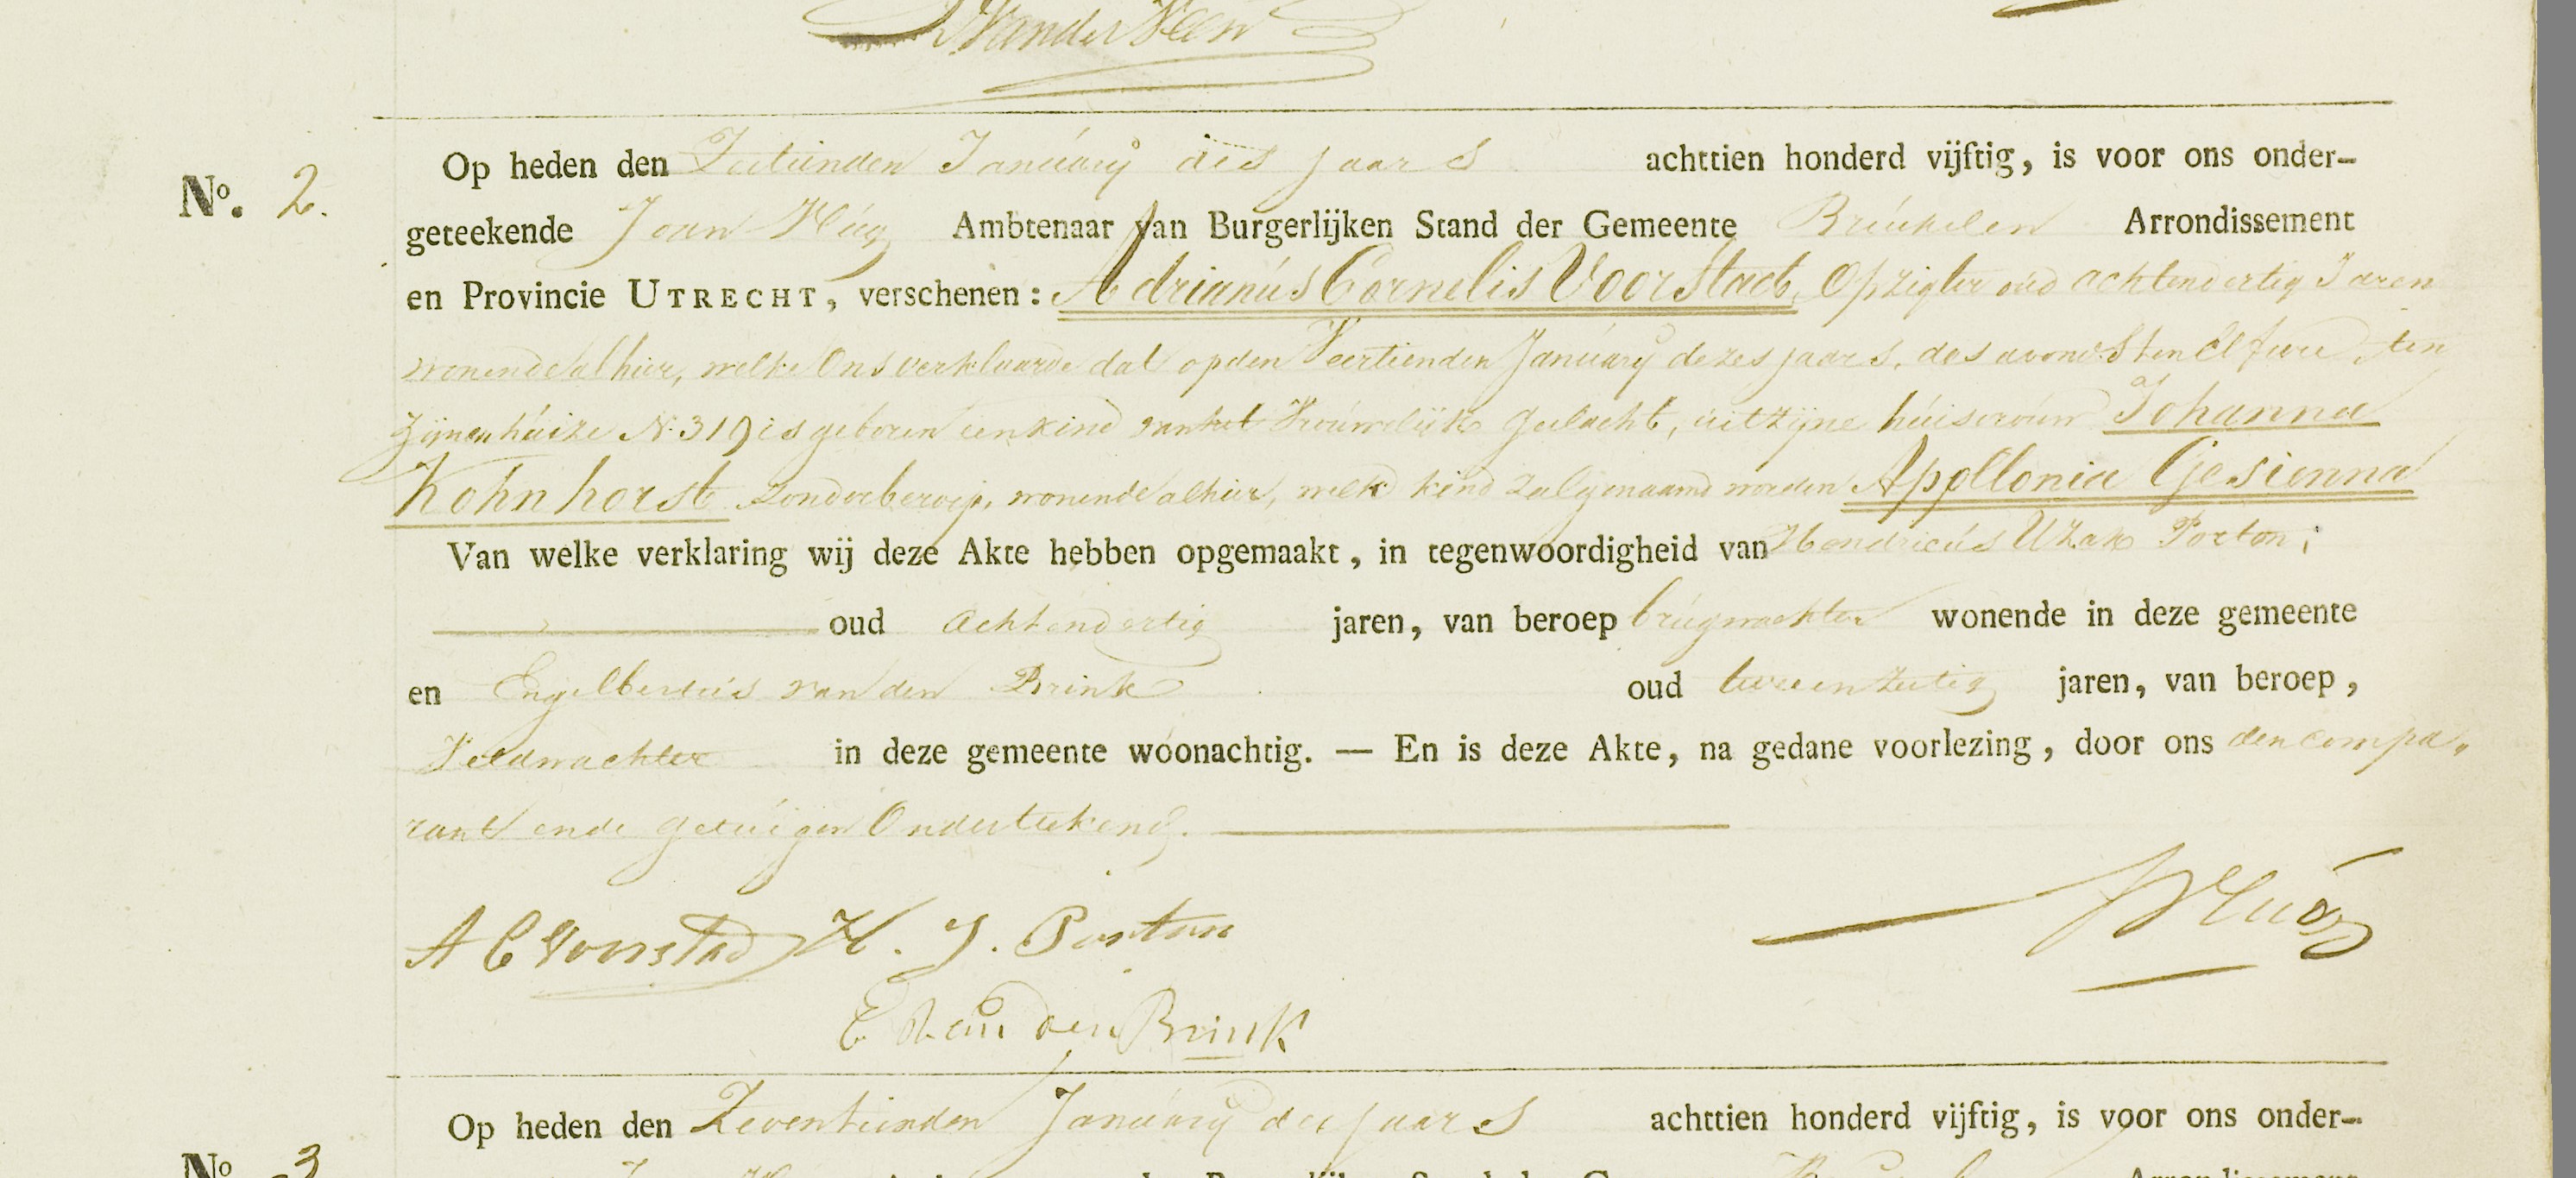 VanderVeen
Nº. 2.
Op heden den Zestienden Januarij des jaars achttien honderd vijftig, is voor ons onder-
geteekende Joan Húg Ambtenaar van Burgerlijken Stand der Gemeente Breukelen Arrondissement
en Provincie UTRECHT, verschenen: Adrianús Cornelis Voorstadt, Opzigter oud achtendertig Jaren
wonende alhier, welke Ons verklaarde dat op den Veertienden Januarij dezes jaars, des avonds ten Elf ure, ten
zijnen húize N. 319 is geboren een kind van het Vroúwelijk Geslacht, úit zijne húisvroúw Johanna
Kohnhorst zonder beroep, wonende alhier, welk kind zal genaamd worden Appollonia Gesienna
Van welke verklaring wij deze Akte hebben opgemaakt, in tegenwoordigheid van Hendricús Izak Porton,
oud Achtendertig jaren, van beroep brúgwachter wonende in deze gemeente
en Engelbertús van den Brink oud twee en zestig jaren, van beroep,
Veldwachter in deze gemeente woonachtig. — En is deze Akte, na gedane voorlezing, door ons den compa-
rant en de getúigen Onderteekend.
A C Voorstad H. J. Porton
E van den Brink
Op heden den Zeventienden Januarij des jaars achttien honderd vijftig, is voor ons onder-
Nº 3